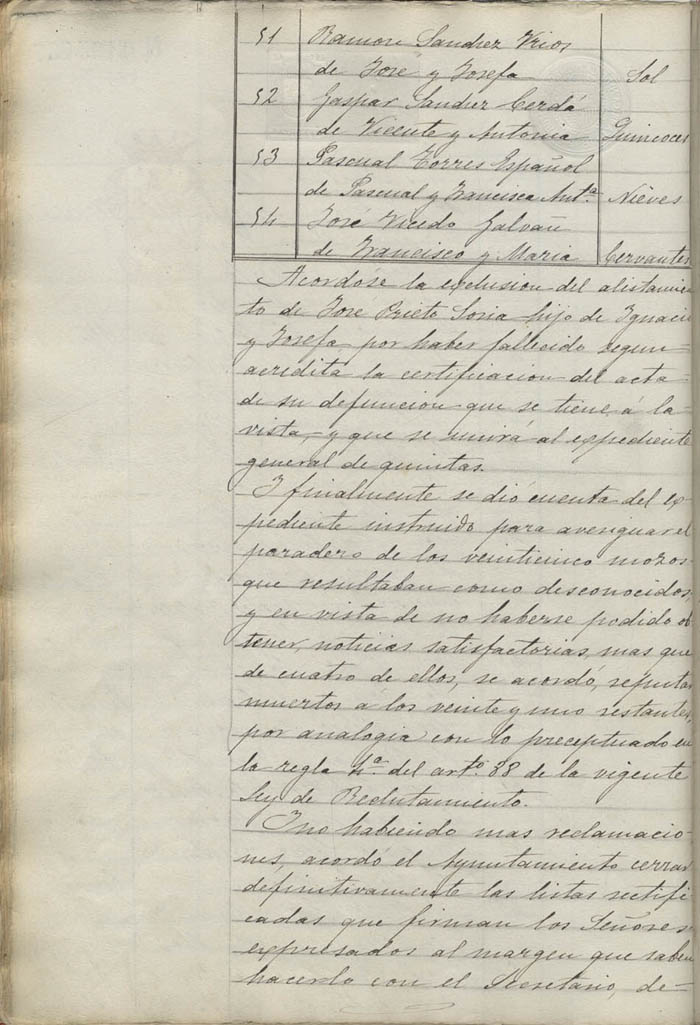 51 Ramon Sanchez Vrios
de José y Josefa Sol
52 Gaspar Sanchez Cerdá
de Vicente y Antonia Quincoces
53 Pascual Torres Español
de Pascual y Francisca Antª Nieves
54 José Vicedo Galvañ
de Francisco y Maria Cervantes
Acordóse la exclusion del alistamien
to de José Prieto Soria hijo de Ignacio
y Josefa, por haber fallecido segun
acredita la certificacion del acta
de su defuncion que se tiene á la
vista, y que se unirá al expediente
general de quintas.
Y finalmente se dió cuenta del ex-
pediente instruido para averiguar el
paradero de los veinticinco mozos
que resultaban como desconocidos,
y en vista de no haberse podido ob
tener, noticias satisfactorias, mas que
de cuatro de ellos, se acordó, reputar
muertos a los veinte y uno restantes,
por analogia con lo preceptuado en
la regla 4ª del artº 88 de la vigente
Ley de Reclutamiento.
Y no habiendo mas reclamacio-
nes, acordó el Ayuntamiento cerrar
definitivamente las listas rectifi
cadas que firman los Señores
expresados al margen que saben
hacerlo con el Secretario, de-